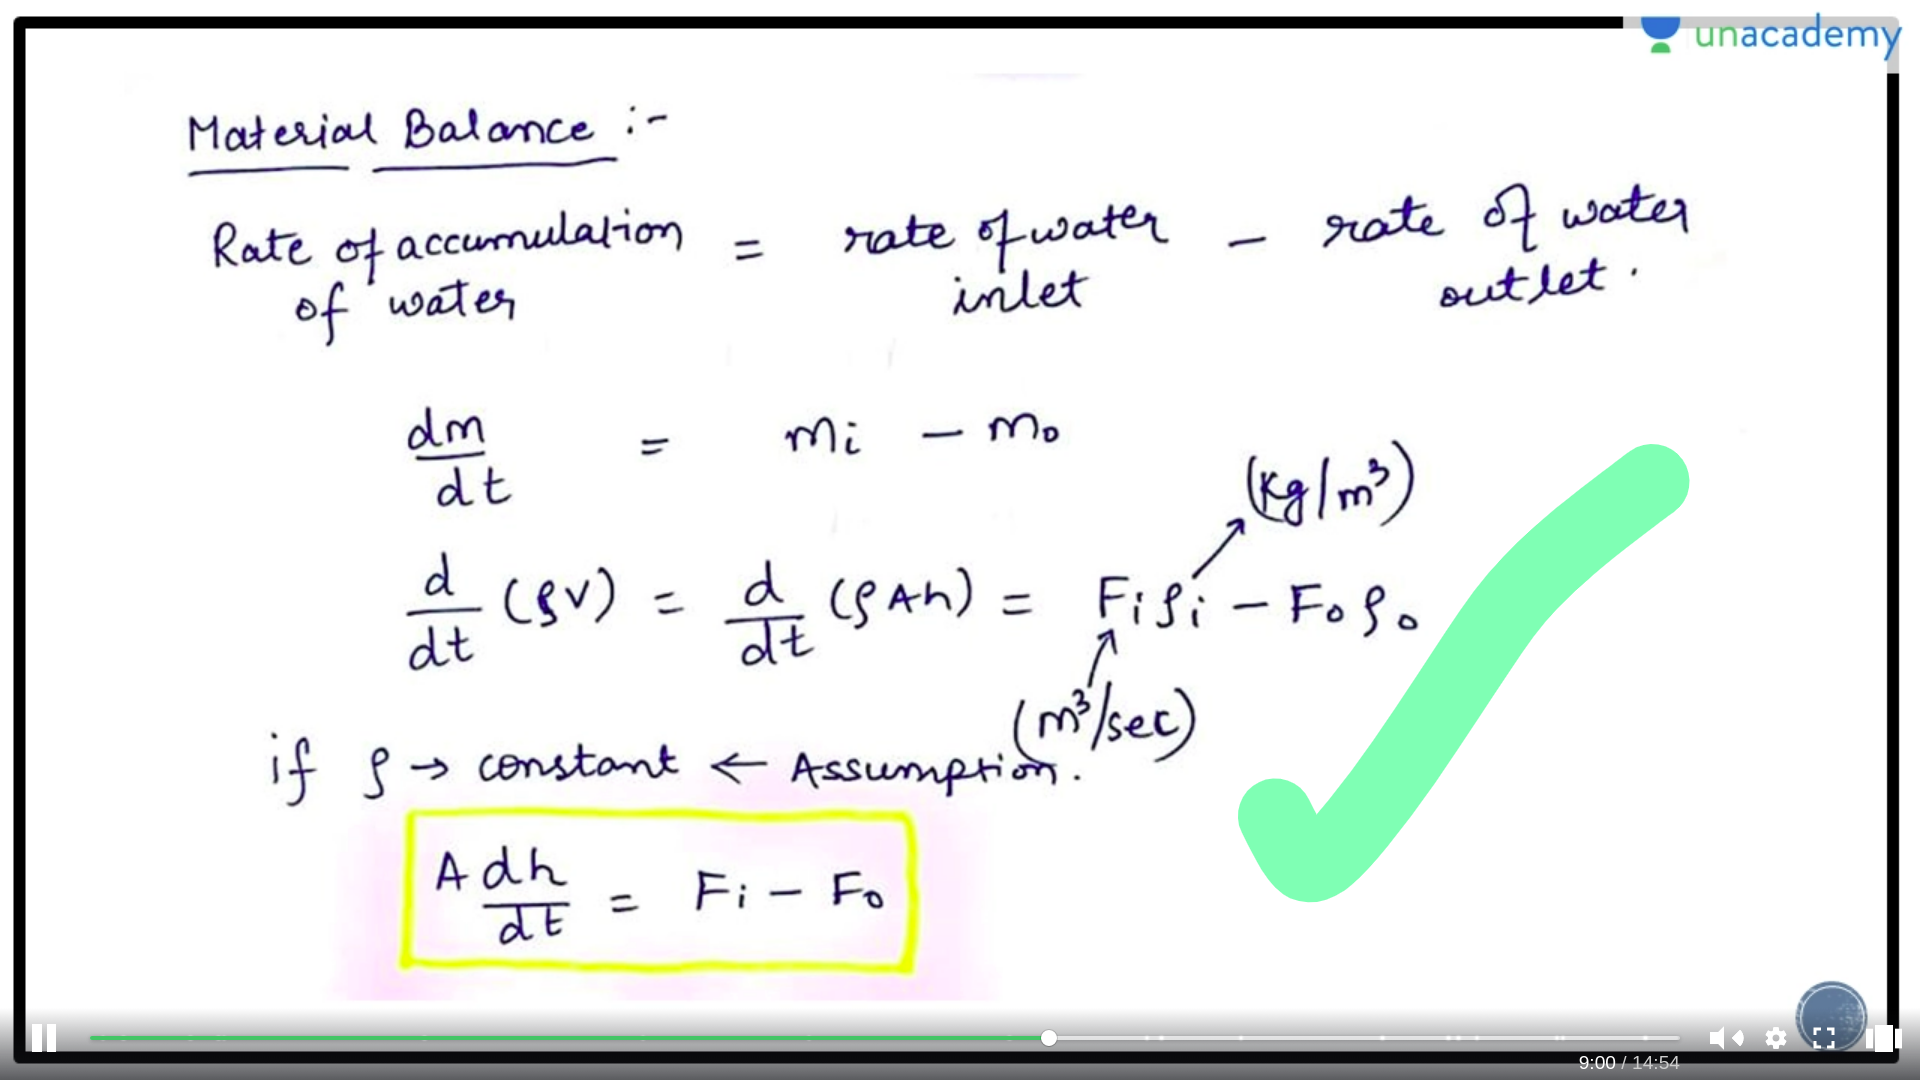 unacademy
Material Balance :-
Rate of accumulation of water = rate of water inlet - rate of water outlet.
dm/dt = mi - mo
(Kg/m³)
d/dt (ρV) = d/dt (ρAh) = Fiρi - Foρo
(m³/sec)
if ρ → constant ← Assumption.
A dh/dt = Fi - Fo
9:00 / 14:54